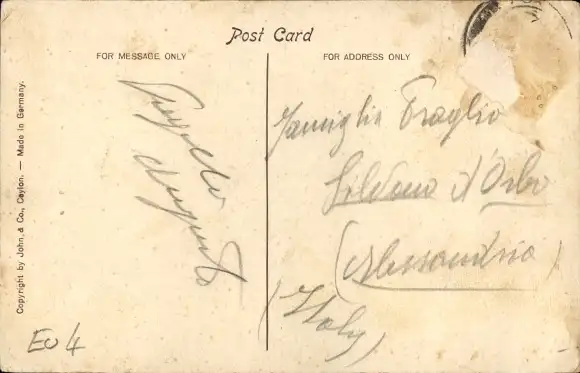 Post Card
FOR MESSAGE ONLY
FOR ADDRESS ONLY
Copyright by John, & Co., Ceylon. — Made in Germany.
Famiglia Traglio
Silvano d'Orba
(Alessandria)
(Italy)
EU 4